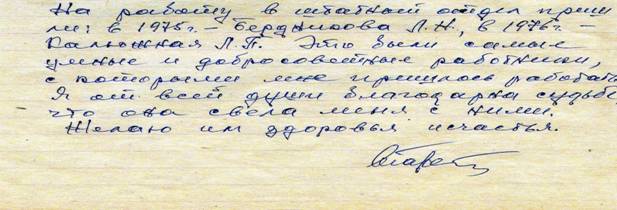 На работу в штатный отдел приш
ли: в 1975г. – Бердникова Л.Н., в 1976г. –
Калюжная Л.П. Это были самые
умные и добросовестные работники,
с которыми мне пришлось работать
Я от всей души благодарна судьбе,
что она свела меня с ними.
Желаю им здоровья и счастья.